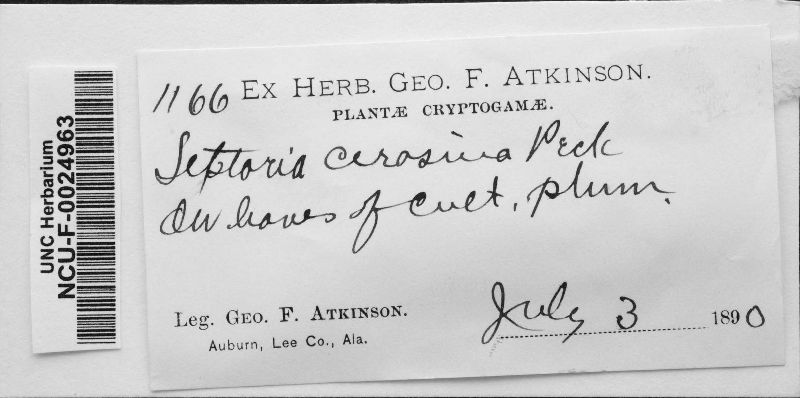 UNC Herbarium
NCU-F-0024963
1166 EX HERB. GEO. F. ATKINSON.
PLANTÆ CRYPTOGAMÆ.
Septoria cerasina Peck
On leaves of cult. plum.
Leg. GEO. F. ATKINSON.
Auburn, Lee Co., Ala.
July 3 1890